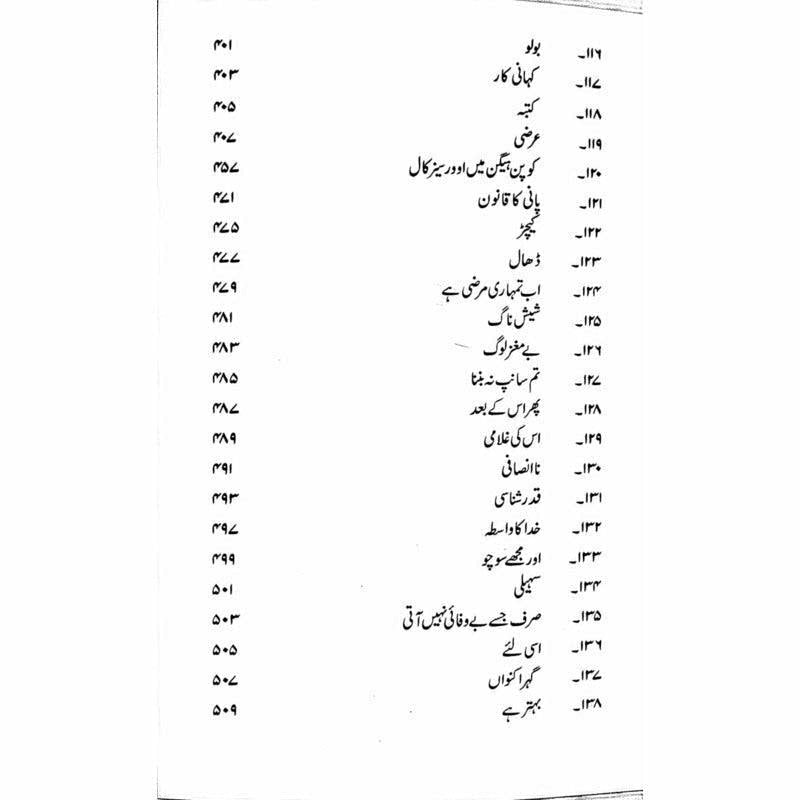 ۱۱۶۔ بولو ۴۰۱
۱۱۷۔ کہانی کار ۴۰۳
۱۱۸۔ کتبہ ۴۰۵
۱۱۹۔ عرضی ۴۰۷
۱۲۰۔ کوپن ہیگن میں اوورسیز کال ۴۵۷
۱۲۱۔ پانی کا قانون ۴۷۱
۱۲۲۔ کیچڑ ۴۷۵
۱۲۳۔ ڈھال ۴۷۷
۱۲۴۔ اب تمہاری مرضی ہے ۴۷۹
۱۲۵۔ شیش ناگ ۴۸۱
۱۲۶۔ بے مغز لوگ ۴۸۳
۱۲۷۔ تم سانپ نہ بننا ۴۸۵
۱۲۸۔ پھر اس کے بعد ۴۸۷
۱۲۹۔ اس کی غلامی ۴۸۹
۱۳۰۔ ناانصافی ۴۹۱
۱۳۱۔ قدر شناسی ۴۹۳
۱۳۲۔ خدا کا واسطہ ۴۹۷
۱۳۳۔ اور مجھے سوچو ۴۹۹
۱۳۴۔ سہیلی ۵۰۱
۱۳۵۔ صرف جسے بے وفائی نہیں آتی ۵۰۳
۱۳۶۔ اسی لئے ۵۰۵
۱۳۷۔ گہرا کنواں ۵۰۷
۱۳۸۔ بہتر ہے ۵۰۹